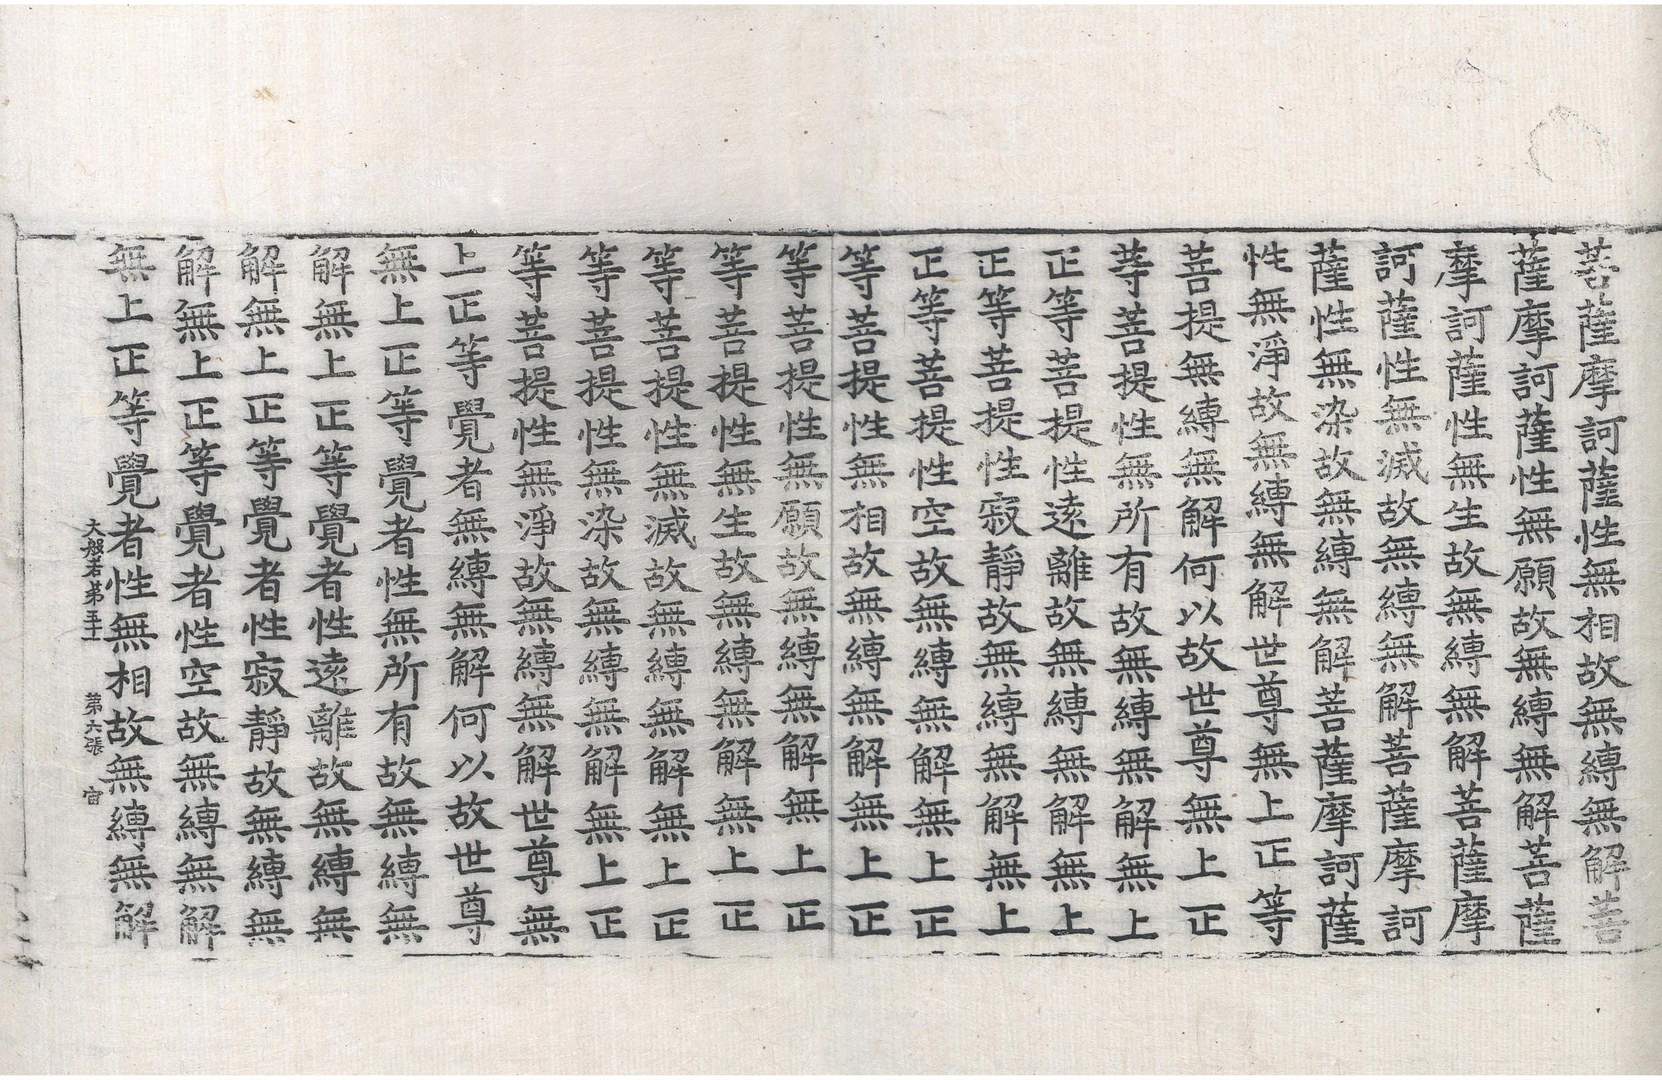 菩薩摩訶薩性無相故無縛無解菩
薩摩訶薩性無願故無縛無解菩薩
摩訶薩性無生故無縛無解菩薩摩
訶薩性無滅故無縛無解菩薩摩訶
薩性無染故無縛無解菩薩摩訶薩
性無淨故無縛無解世尊無上正等
菩提無縛無解何以故世尊無上正
等菩提性無所有故無縛無解無上
正等菩提性遠離故無縛無解無上
正等菩提性寂靜故無縛無解無上
正等菩提性空故無縛無解無上正
等菩提性無相故無縛無解無上正
等菩提性無願故無縛無解無上正
等菩提性無生故無縛無解無上正
等菩提性無滅故無縛無解無上正
等菩提性無染故無縛無解無上正
等菩提性無淨故無縛無解世尊無
上正等覺者無縛無解何以故世尊
無上正等覺者性無所有故無縛無
解無上正等覺者性遠離故無縛無
解無上正等覺者性寂靜故無縛無
解無上正等覺者性空故無縛無解
無上正等覺者性無相故無縛無解
大般若第五十一 第六張 宙